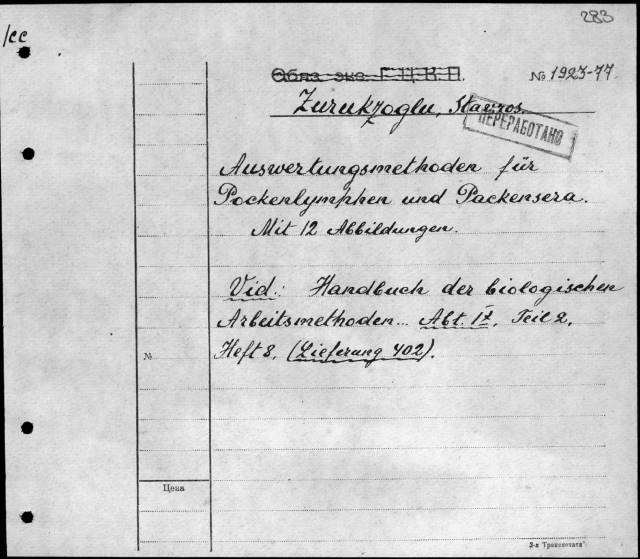 283
/cc
Обяз. экз. Г.Ц.К.П.
№ 1923-77
Zurukzoglu, Stavros.
ПЕРЕРАБОТАНО
Auswertungsmethoden für
Pockenlymphen und Packensera.
Mit 12 Abbildungen.
Vid.: Handbuch der biologischen
Arbeitsmethoden... Abt. IX, Teil 2,
№
Heft 8, (Lieferung 402).
Цена